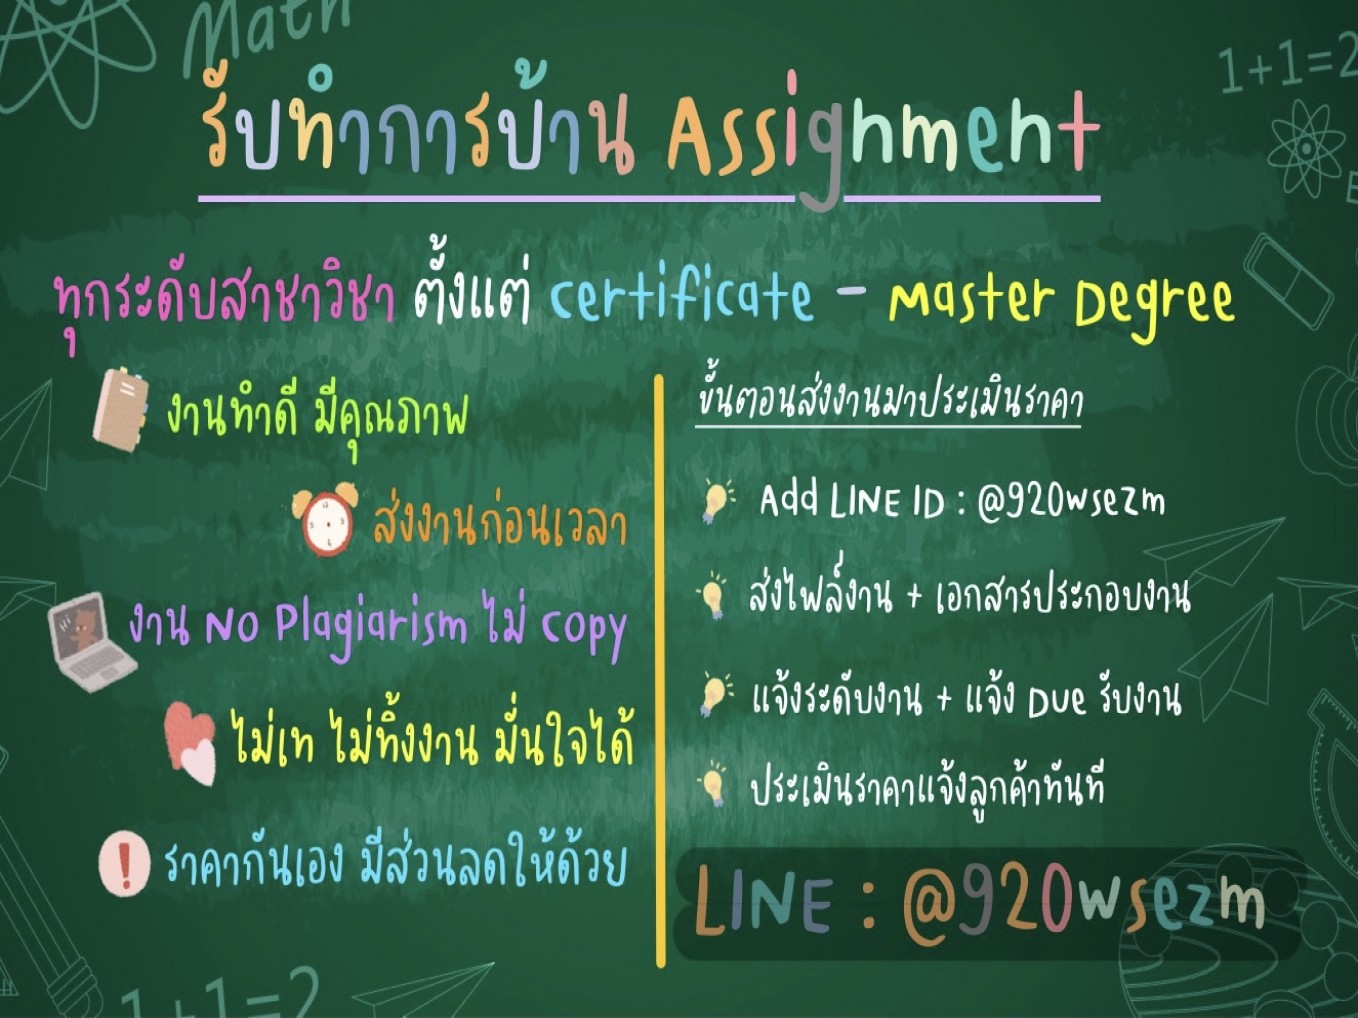 Math
1+1=2
รับทำการบ้าน Assighmeht
ทุกระดับสาขาวิชา ตั้งแต่ certificate - Master Degree
งานทำดี มีคุณภาพ
ส่งงานก่อนเวลา
งาน No Plagiarism ไม่ copy
ไม่เท ไม่ทิ้งงาน มั่นใจได้
ราคากันเอง มีส่วนลดให้ด้วย
ขั้นตอนส่งงานมาประเมินราคา
Add LINE ID : @920wsezm
ส่งไฟล์งาน + เอกสารประกอบงาน
แจ้งระดับงาน + แจ้ง Due รับงาน
ประเมินราคาแจ้งลูกค้าทันที
LINE : @920wsezm
1+1=2